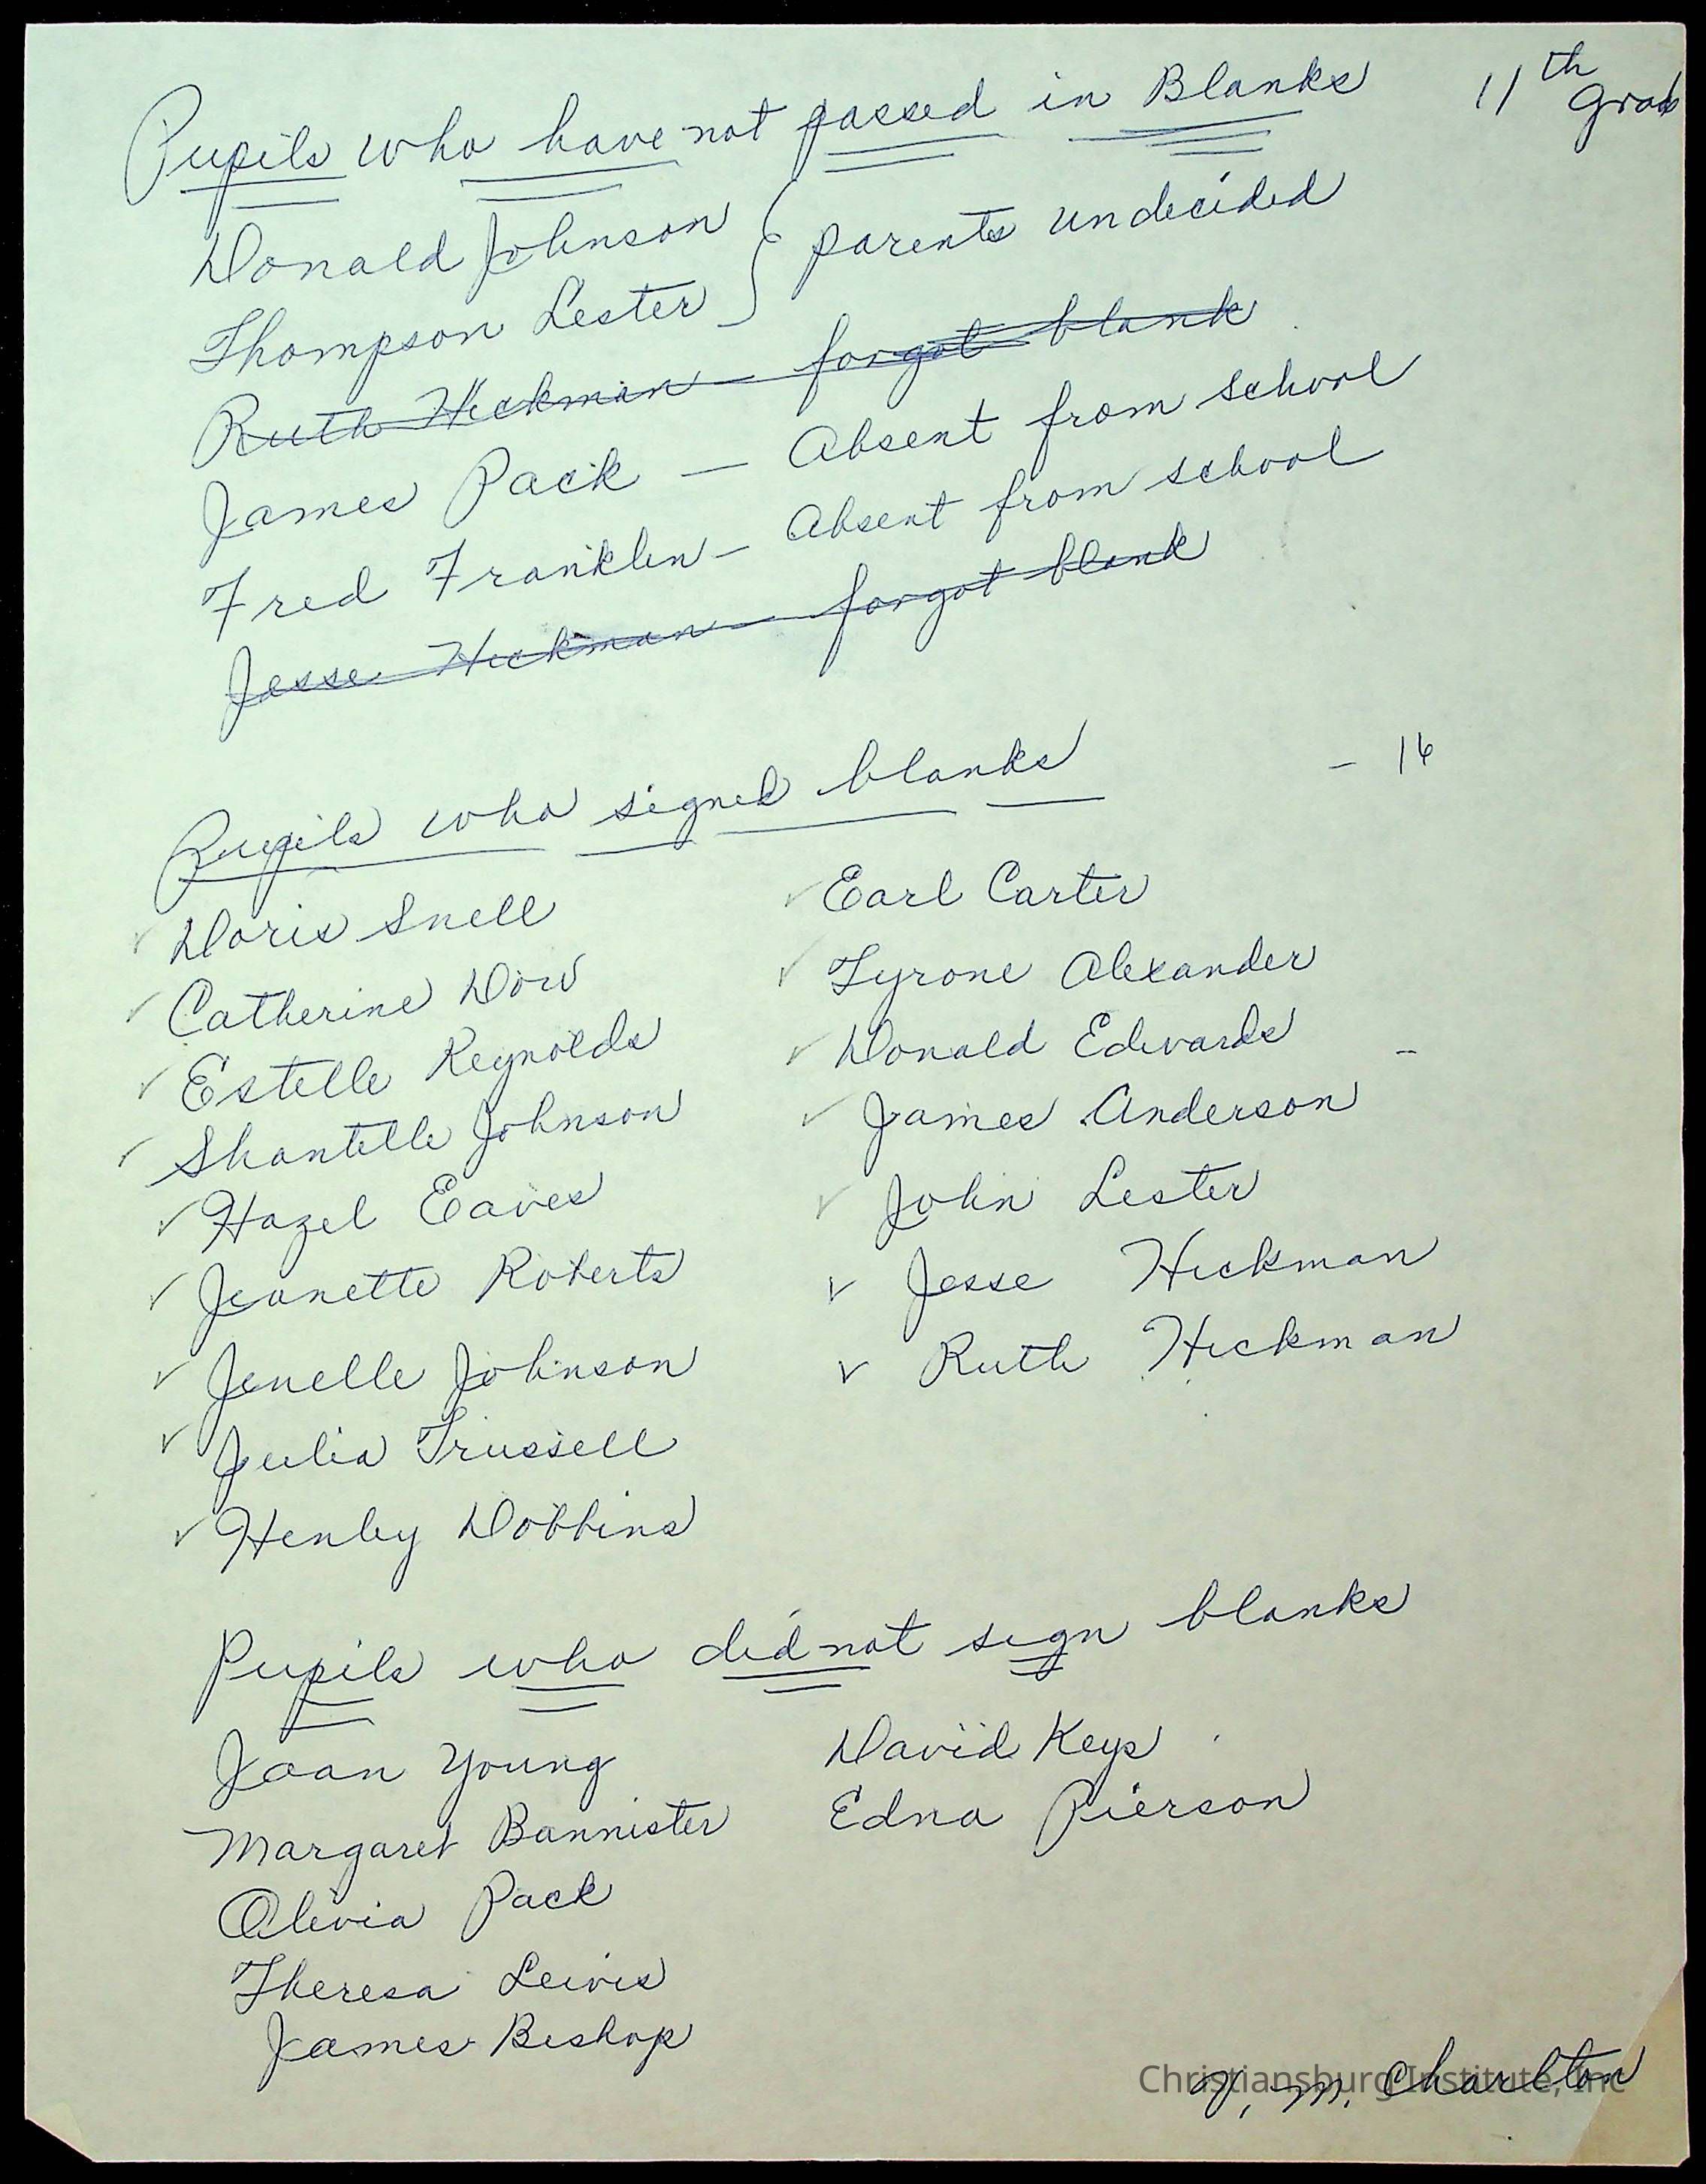 11th
Grade
Pupils who have not passed in Blanks
Donald Johnson } parents undecided
Thompson Lester
Ruth Hickman - forgot blank
James Pack - Absent from school
Fred Franklin - Absent from school
Jesse Hickman - forgot blank
Pupils who signed blanks - 16
Doris Snell
Catherine Dow
Estelle Reynolds
Shantelle Johnson
Hazel Eaves
Jeanette Roberts
Jenelle Johnson
Julia Trussell
Henley Dobbins
Earl Carter
Tyrone Alexander
Donald Edwards -
James Anderson
John Lester
Jesse Hickman
Ruth Hickman
Pupils who did not sign blanks
Joan Young
Margaret Bannister
Olivia Pack
Theresa Lewis
James Bishop
David Keys
Edna Pierson
M. Charlton
Christiansburg Institute, Inc